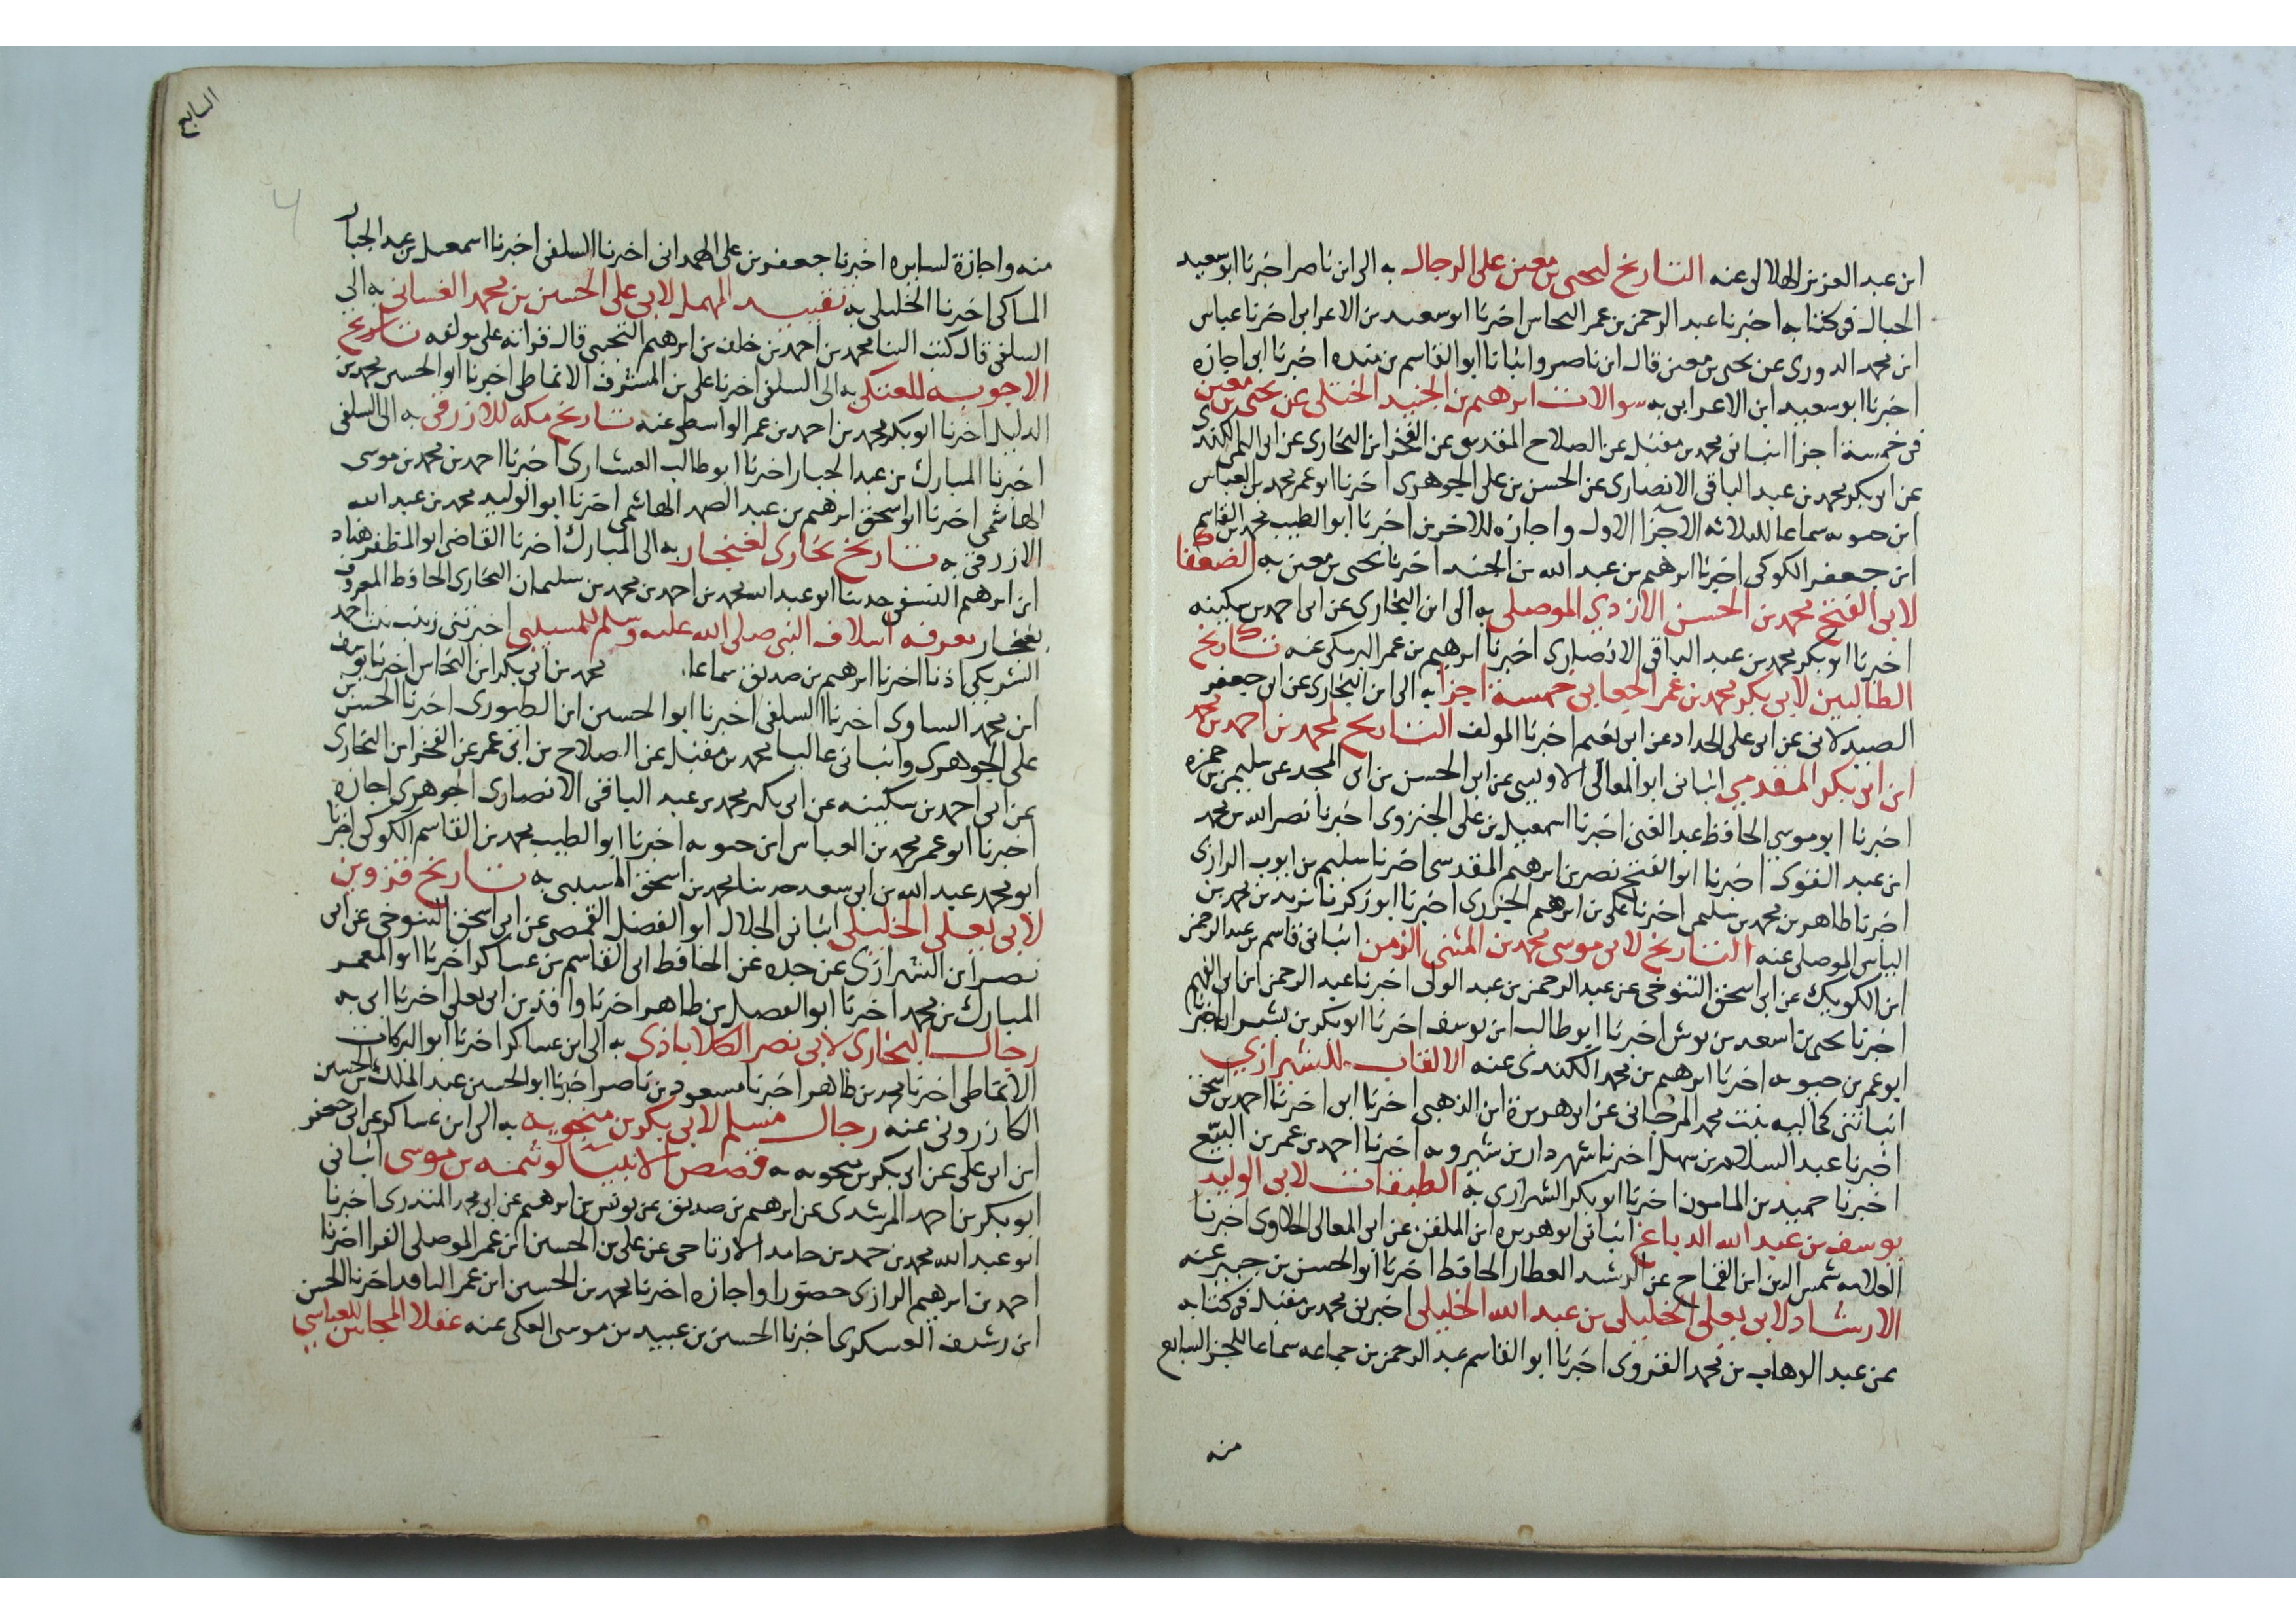 ابن عبد العزيز الهلالى عنه التاريخ ليحيى بن معين على الرجال به الى ابن ناصر اخبرنا ابو سعيد
الحبال فى كتابه اخبرنا عبد الرحمن بن عمر النحاس اخبرنا ابو سعيد بن الاعرابى اخبرنا عباس
ابن محمد الدورى عن يحيى بن معين قال ابن ناصر وانبانا ابو القاسم بن منده اخبرنا ابى اجازه
اخبرنا ابو سعيد ابن الاعرابى به سوالات ابرهيم بن الجنيد الختلى عن يحيى بن معين
فى خمسة اجزا انبانى محمد بن مقبل عن الصلاح المقدسى عن الفخر ابن البخارى عن ابى اليمن الكندى
عن ابو بكر محمد بن عبد الباقى الانصارى عن الحسن بن على الجوهرى اخبرنا ابو عمر محمد بن العباس
ابن حيويه سماعا للثلاثه الاجزا الاول واجازه للاخرين اخبرنا ابو الطيب محمد بن القاسم
ابن جعفر الكوكبى اخبرنا ابرهيم بن عبد الله بن الجنيد اخبرنا يحيى بن معين به الضعفا
لابى الفتح محمد بن الحسن الازدي الموصلى به الى ابن البخارى عن ابى احمد بن سكينه
اخبرنا ابو بكر محمد بن عبد الباقى الانصارى اخبرنا ابرهيم بن عمر البرمكى عنه تاريخ
الطالبيين لابى بكر محمد بن عمر الجعابى خمسة اجزا به الى ابن البخارى عن ابى جعفر
الصيدلانى عن ابى على الحداد عن ابى نعيم اخبرنا المولف التاريخ لمحمد بن احمد بن محمد
ابن ابى بكر المقدمي انبانى ابو المعالى الاوليبى عن ابى الحسن بن ابى المجد عن سليمن بن حمزه
اخبرنا ابو موسى الحافظ عبد الغنى اخبرنا اسمعيل بن على الجنزوى اخبرنا نصر الله بن محمد
ابن عبد القوى اخبرنا ابو الفتح نصر بن ابرهيم المقدسى اخبرنا سليم بن ايوب الرازى
اخبرنا طاهر بن محمد بن سليمن اخبرنا على بن ابرهيم الجزرى اخبرنا ابو زكريا يزيد بن محمد بن
الياس الموصلى عنه التاريخ لابى موسى محمد بن المثنى الزمن انبانى قاسم بن عبد الرحمن
ابن الكويك عن ابى اسحق التنوخى عن عبد الرحمن بن عبد الولى اخبرنا عبد الرحمن ابن ابى الفهم
اخبرنا يحيى بن اسعد بن بوش اخبرنا ابو طالب ابن يوسف اخبرنا ابو بكر بن بشران اخبرنا
ابو عمر بن حيويه اخبرنا ابرهيم بن محمد الكندى عنه الالقاب للشيرازي
انباتنى كماليه بنت محمد المرجانى عن ابى هريرة ابن الذهبى اخبرنا ابى اخبرنا احمد بن اسحق
اخبرنا عبد السلام بن سهل اخبرنا شهردار بن شيرويه اخبرنا احمد بن عمر بن البيّع
اخبرنا حميد بن المامون اخبرنا ابو بكر الشيرازى به الطبقات لابى الوليد
يوسف بن عبد الله الدباغ انبانى ابو هريره ابن الملقن عن ابى المعالى الحلاوى اخبرنا
العلامه شمس الدين ابن القماح عن الرشيد العطار الحافظ اخبرنا ابو الحسن بن جبير عنه
الارشاد لابى يعلى الخليلى بن عبد الله الخليلى اخبرنى محمد بن مقبل فى كتابه
عن عبد الوهاب بن محمد القروى اخبرنا ابو القاسم عبد الرحمن بن جماعه سماعا للجز السابع
منه
السابع
منه واجازة لسايره اخبرنا جعفر بن على الهمدانى اخبرنا السلفى اخبرنا اسمعيل بن عبد الجبار
الماكى اخبرنا الخليلى به تقييد المهمل لابى على الحسين بن محمد الغسانى به الى
السلفى قال كتب الينا محمد بن احمد بن خلف بن ابرهيم التجيبى قال قراته على مولفه تاريخ
الاجوبه للعتكى به الى السلفى اخبرنا على بن المشرف الانماطى اخبرنا ابو الحسن محمد بن
الدليل اخبرنا ابو بكر محمد بن احمد بن عمر الواسطى عنه تاريخ مكه للازرقى به الى السلفى
اخبرنا المبارك بن عبد الجبار اخبرنا ابو طالب العشارى اخبرنا احمد بن محمد بن موسى
الهاشمى اخبرنا ابو اسحق ابرهيم بن عبد الصمد الهاشمى اخبرنا ابو الوليد محمد بن عبد الله
الازرقى به تاريخ بخارى لغنجار به الى المبارك اخبرنا القاضى ابو المظفر هناد
ابن ابرهيم النسفى حدثنا ابو عبد الله محمد بن احمد بن محمد بن سليمان البخارى الحافظ المعروف
بغنجار معرفه اسلاف النبى صلى الله عليه وسلم للمسيلبى اخبرتنى زينب بنت احمد
الشويكى اذنا اخبرنا ابرهيم بن صديق سماعا. محمد بن ابى بكر ابن النحاس اخبرنا يوسف
ابن محمد الساوى اخبرنا السلفى اخبرنا ابو الحسين ابن الطيورى اخبرنا الحسن بن
على الجوهرى وانبانى عاليا محمد بن مقبل عن الصلاح بن ابى عمر عن الفخر ابن البخارى
عن ابى احمد بن سكينه عن ابى بكر محمد بن عبد الباقى الانصارى الجوهرى اجازه
اخبرنا ابو عمر محمد بن العباس ابن حيويه اخبرنا ابو الطيب محمد بن القاسم الكوكبى اخبرنا
ابو محمد عبد الله بن ابى سعد حدثنا محمد بن اسحق المسيبى به تاريخ قزوين
لابى يعلى الخليلى انبانى الجلال ابو الفضل القمصى عن ابى اسحق التنوخى عن ابى
نصر ابن الشيرازى عن جده عن الحافظ ابى القاسم بن عساكر اخبرنا ابو المعمر
المبارك بن محمد اخبرنا ابو الفضل بن طاهر اخبرنا واقد بن ابى يعلى اخبرنا ابى به
رجال البخارى لابى نصر الكلاباذى به الى ابن عساكر اخبرنا ابو البركات
الانماطى اخبرنا محمد بن طاهر اخبرنا مسعود بن ناصر اخبرنا ابو الحسين عبد الملك بن الحسين
الكازرونى عنه رجال مسلم لابى بكر بن منجويه به الى ابن عساكر عن ابى جعفر
ابن ابى على عن ابى بكر بن منجويه به قصص الانبيا لوثيمه بن موسى انبانى
ابو بكر بن احمد المرشدى عن ابرهيم بن صديق عن يونس بن ابرهيم عن ابى محمد المنذرى اخبرنا
ابو عبد الله محمد بن حمد بن حامد الارتاحى عن على بن الحسين ابن عمر الموصلى الفرا اخبرنا
احمد بن ابرهيم الرازى حضورا واجازه اخبرنا محمد بن الحسين ابن عمر الناقد اخبرنا الحسن
ابن رشيق العسكرى اخبرنا الحسين بن عبيد بن موسى العكى عنه عقلا المجانين للعباسي